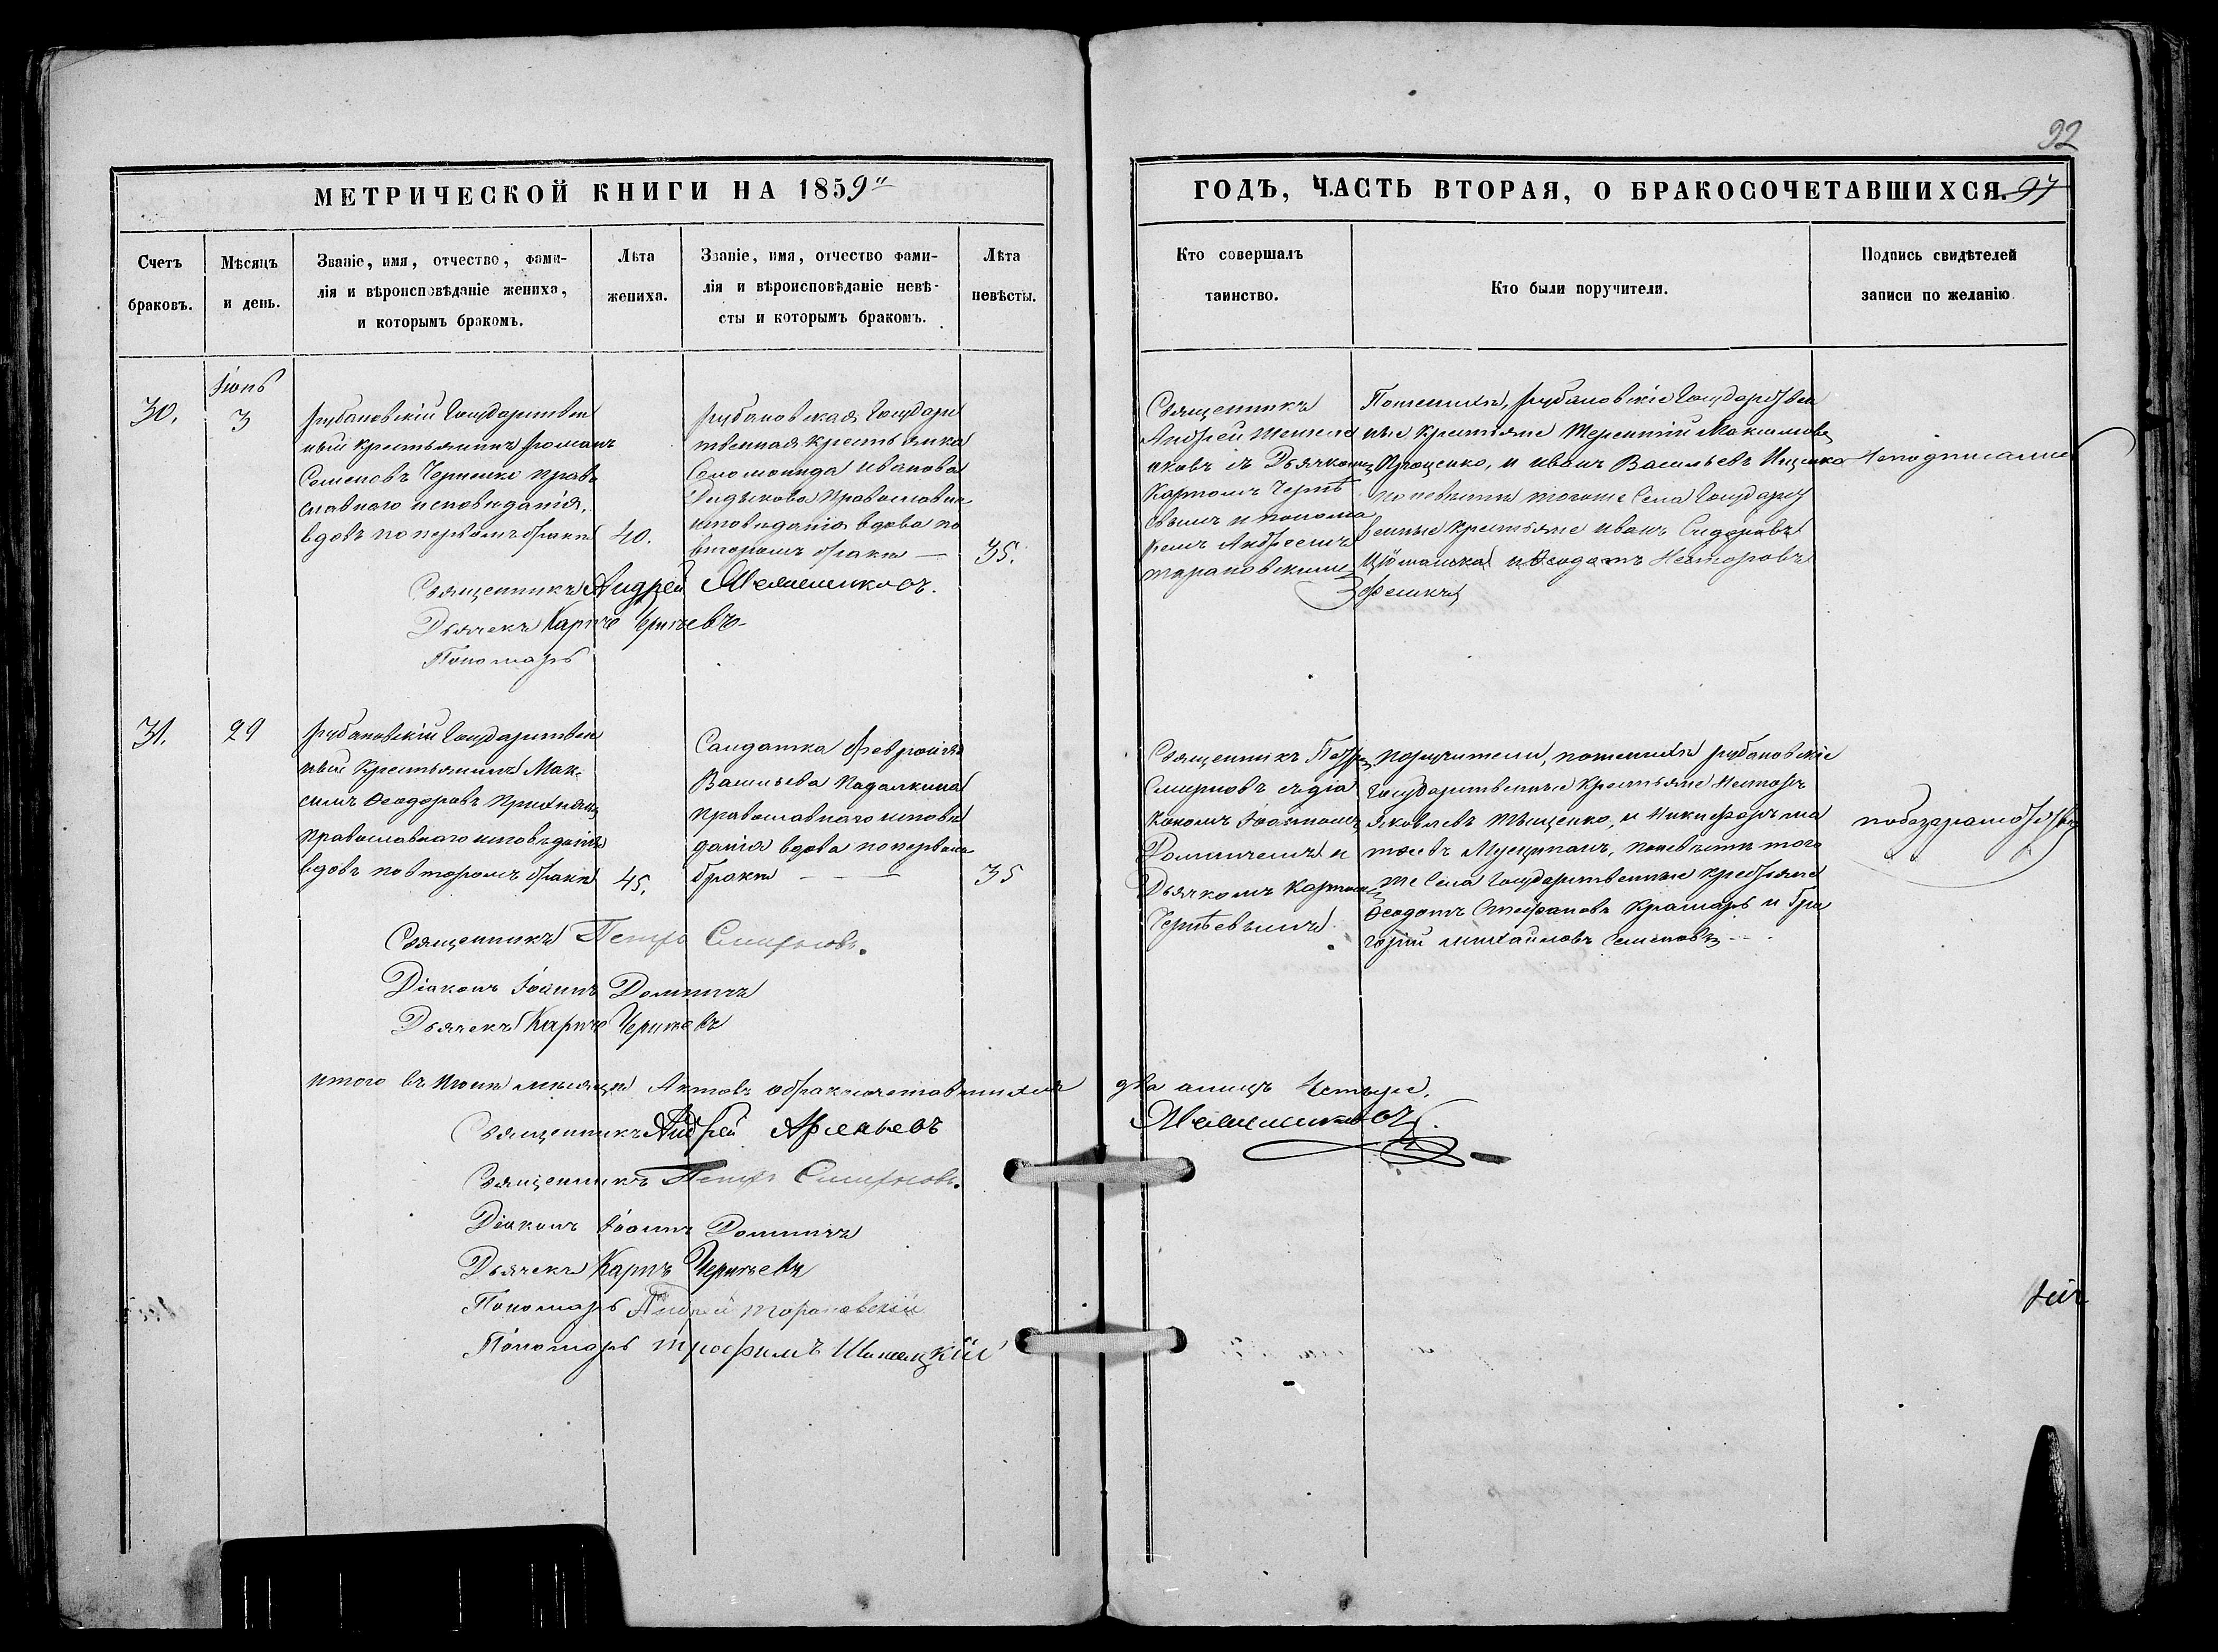 92
МЕТРИЧЕСКОЙ КНИГИ НА 1859
ГОДЪ, ЧАСТЬ ВТОРАЯ, О БРАКОСОЧЕТАВШИХСЯ. 97
Счетъ
браковъ.
Мѣсяцъ
и день.
Званіе, имя, отчество, фами-
лія и вѣроисповѣданіе жениха,
и которымъ бракомъ.
Лѣта
жениха.
Званіе, имя, отчество фами-
лія и вѣроисповѣданіе невѣ-
сты и которымъ бракомъ.
Лѣта
невѣсты.
Кто совершалъ
таинство.
Кто были поручители.
Подпись свидѣтелей
записи по желанію
Іюнь
30.
3
Рубановскій Государствен
ный крестьянинъ Романъ
Семеновъ Черненко право
славнаго исповѣданія,
вдовъ по первомъ бракѣ
40.
Рубановская Государ
твенная крестьянка
Соломонида Иванова
исповѣданія вдова по
второмъ бракѣ —
35.
Священникъ
Андрей
иковъ съ Дьячкомъ
Карпомъ Черть
евымъ и понома
ремъ Андреемъ
тарановскимъ
По женихѣ, Рубановскіе Государствен
ные крестьяне Терентій Максимовъ
Проценко, и Иванъ Васильевъ Ищенко
по невѣстѣ тогоже Села Государст
венные крестьяне Иванъ Сидоровъ
и Ѳеодотъ Несторовъ
Неподписались
Священникъ Андрей
Дьячекъ Карпъ Чертьевъ
Пономарь
31.
29
Рубановскій Государствен
ный Крестьянинъ Мак-
симъ Ѳеодоровъ
православнаго исповѣданія
вдовъ по второмъ бракѣ
45.
Салдатка Февронія
Васильева Падалкина
православнаго исповѣ
данія вдова по первомъ
бракѣ — — —
35
Священникъ Петръ
Смирновъ съ діа
кономъ Іоанномъ
Домничемъ и
Дьячкомъ Карпомъ
Чертьевымъ
поручители, по женихѣ Рубановскіе
Государственные крестьяне Несторъ
Яковлевъ Тищенко, и Никифоръ ма
по невѣстѣ того
же Села Государственные крестьяне
Ѳеодотъ Стефановъ Крамарь и Гри
горій Михайловъ Семеновъ
побезграмотству
Священникъ Петръ Смирновъ.
Діаконъ Іоаннъ Домничъ
Дьячекъ Карпъ Чертьевъ
Итого въ Іюнѣ мѣсяцѣ Актовъ о бракосочетавшихся два а лицъ Четыре.
Священникъ Андрей Арсеньевъ
Священникъ Петръ Смирновъ.
Діаконъ Іоаннъ Домничъ
Дьячекъ Карпъ Чертьевъ
Пономарь Андрей Тарановскій
Пономарь Трофимъ